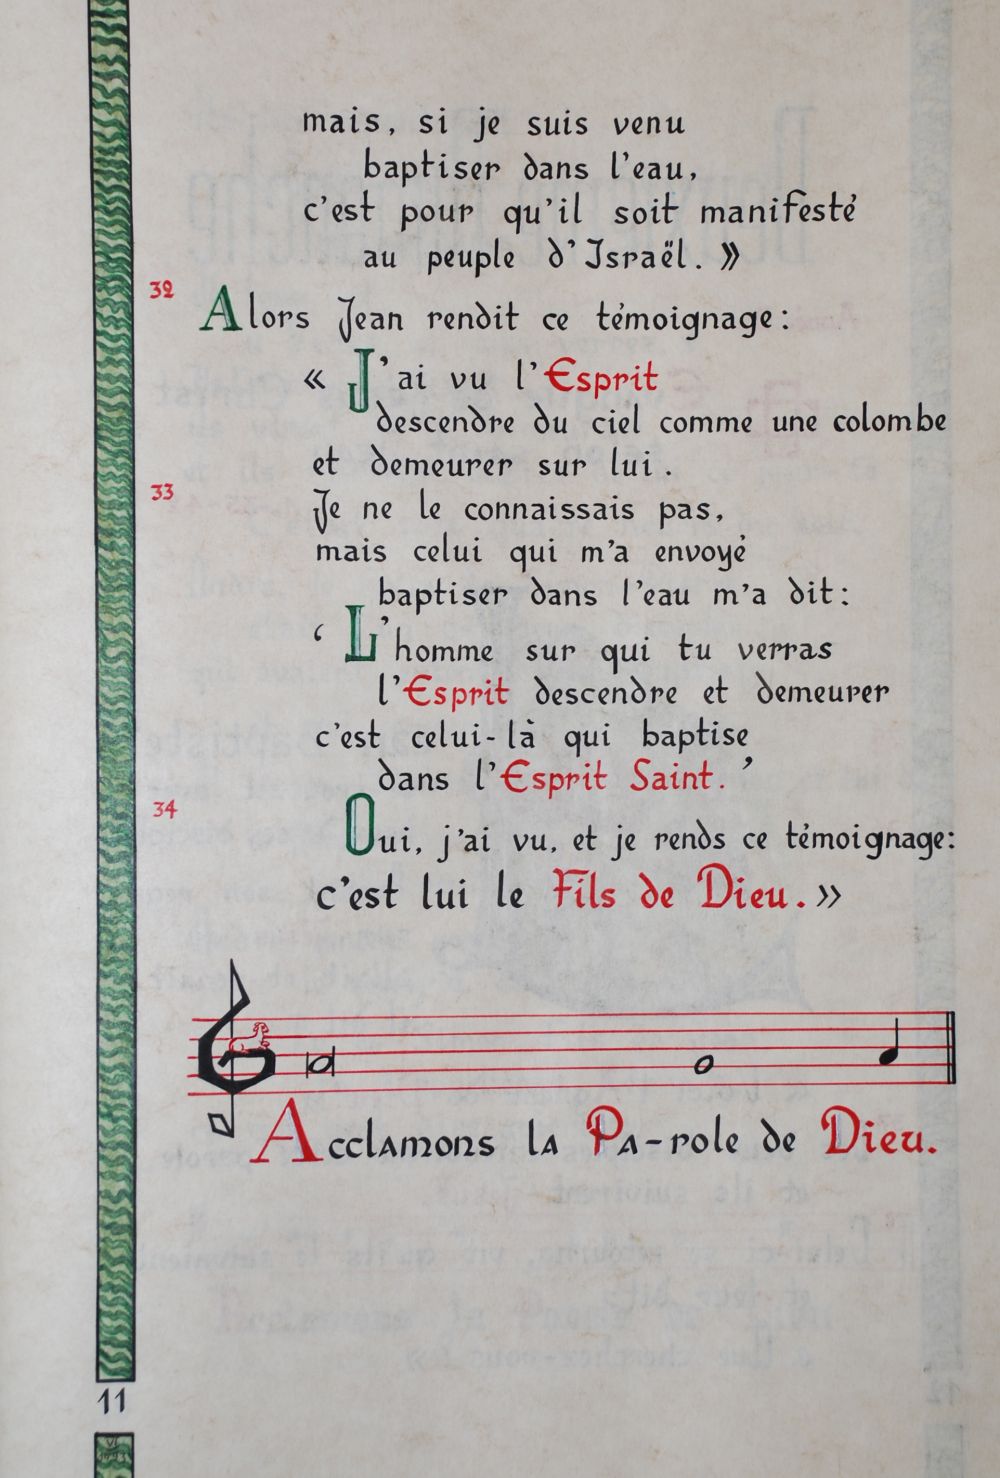 mais, si je suis venu
baptiser dans l'eau,
c'est pour qu'il soit manifesté
au peuple d'Israël. »
32 Alors Jean rendit ce témoignage:
« J'ai vu l'Esprit
descendre du ciel comme une colombe
et demeurer sur lui.
33 Je ne le connaissais pas,
mais celui qui m'a envoyé
baptiser dans l'eau m'a dit:
‘ L'homme sur qui tu verras
l'Esprit descendre et demeurer
c'est celui-là qui baptise
dans l'Esprit Saint. ’
34 Oui, j'ai vu, et je rends ce témoignage:
c'est lui le Fils de Dieu. »
Acclamons la Pa-role de Dieu.
11